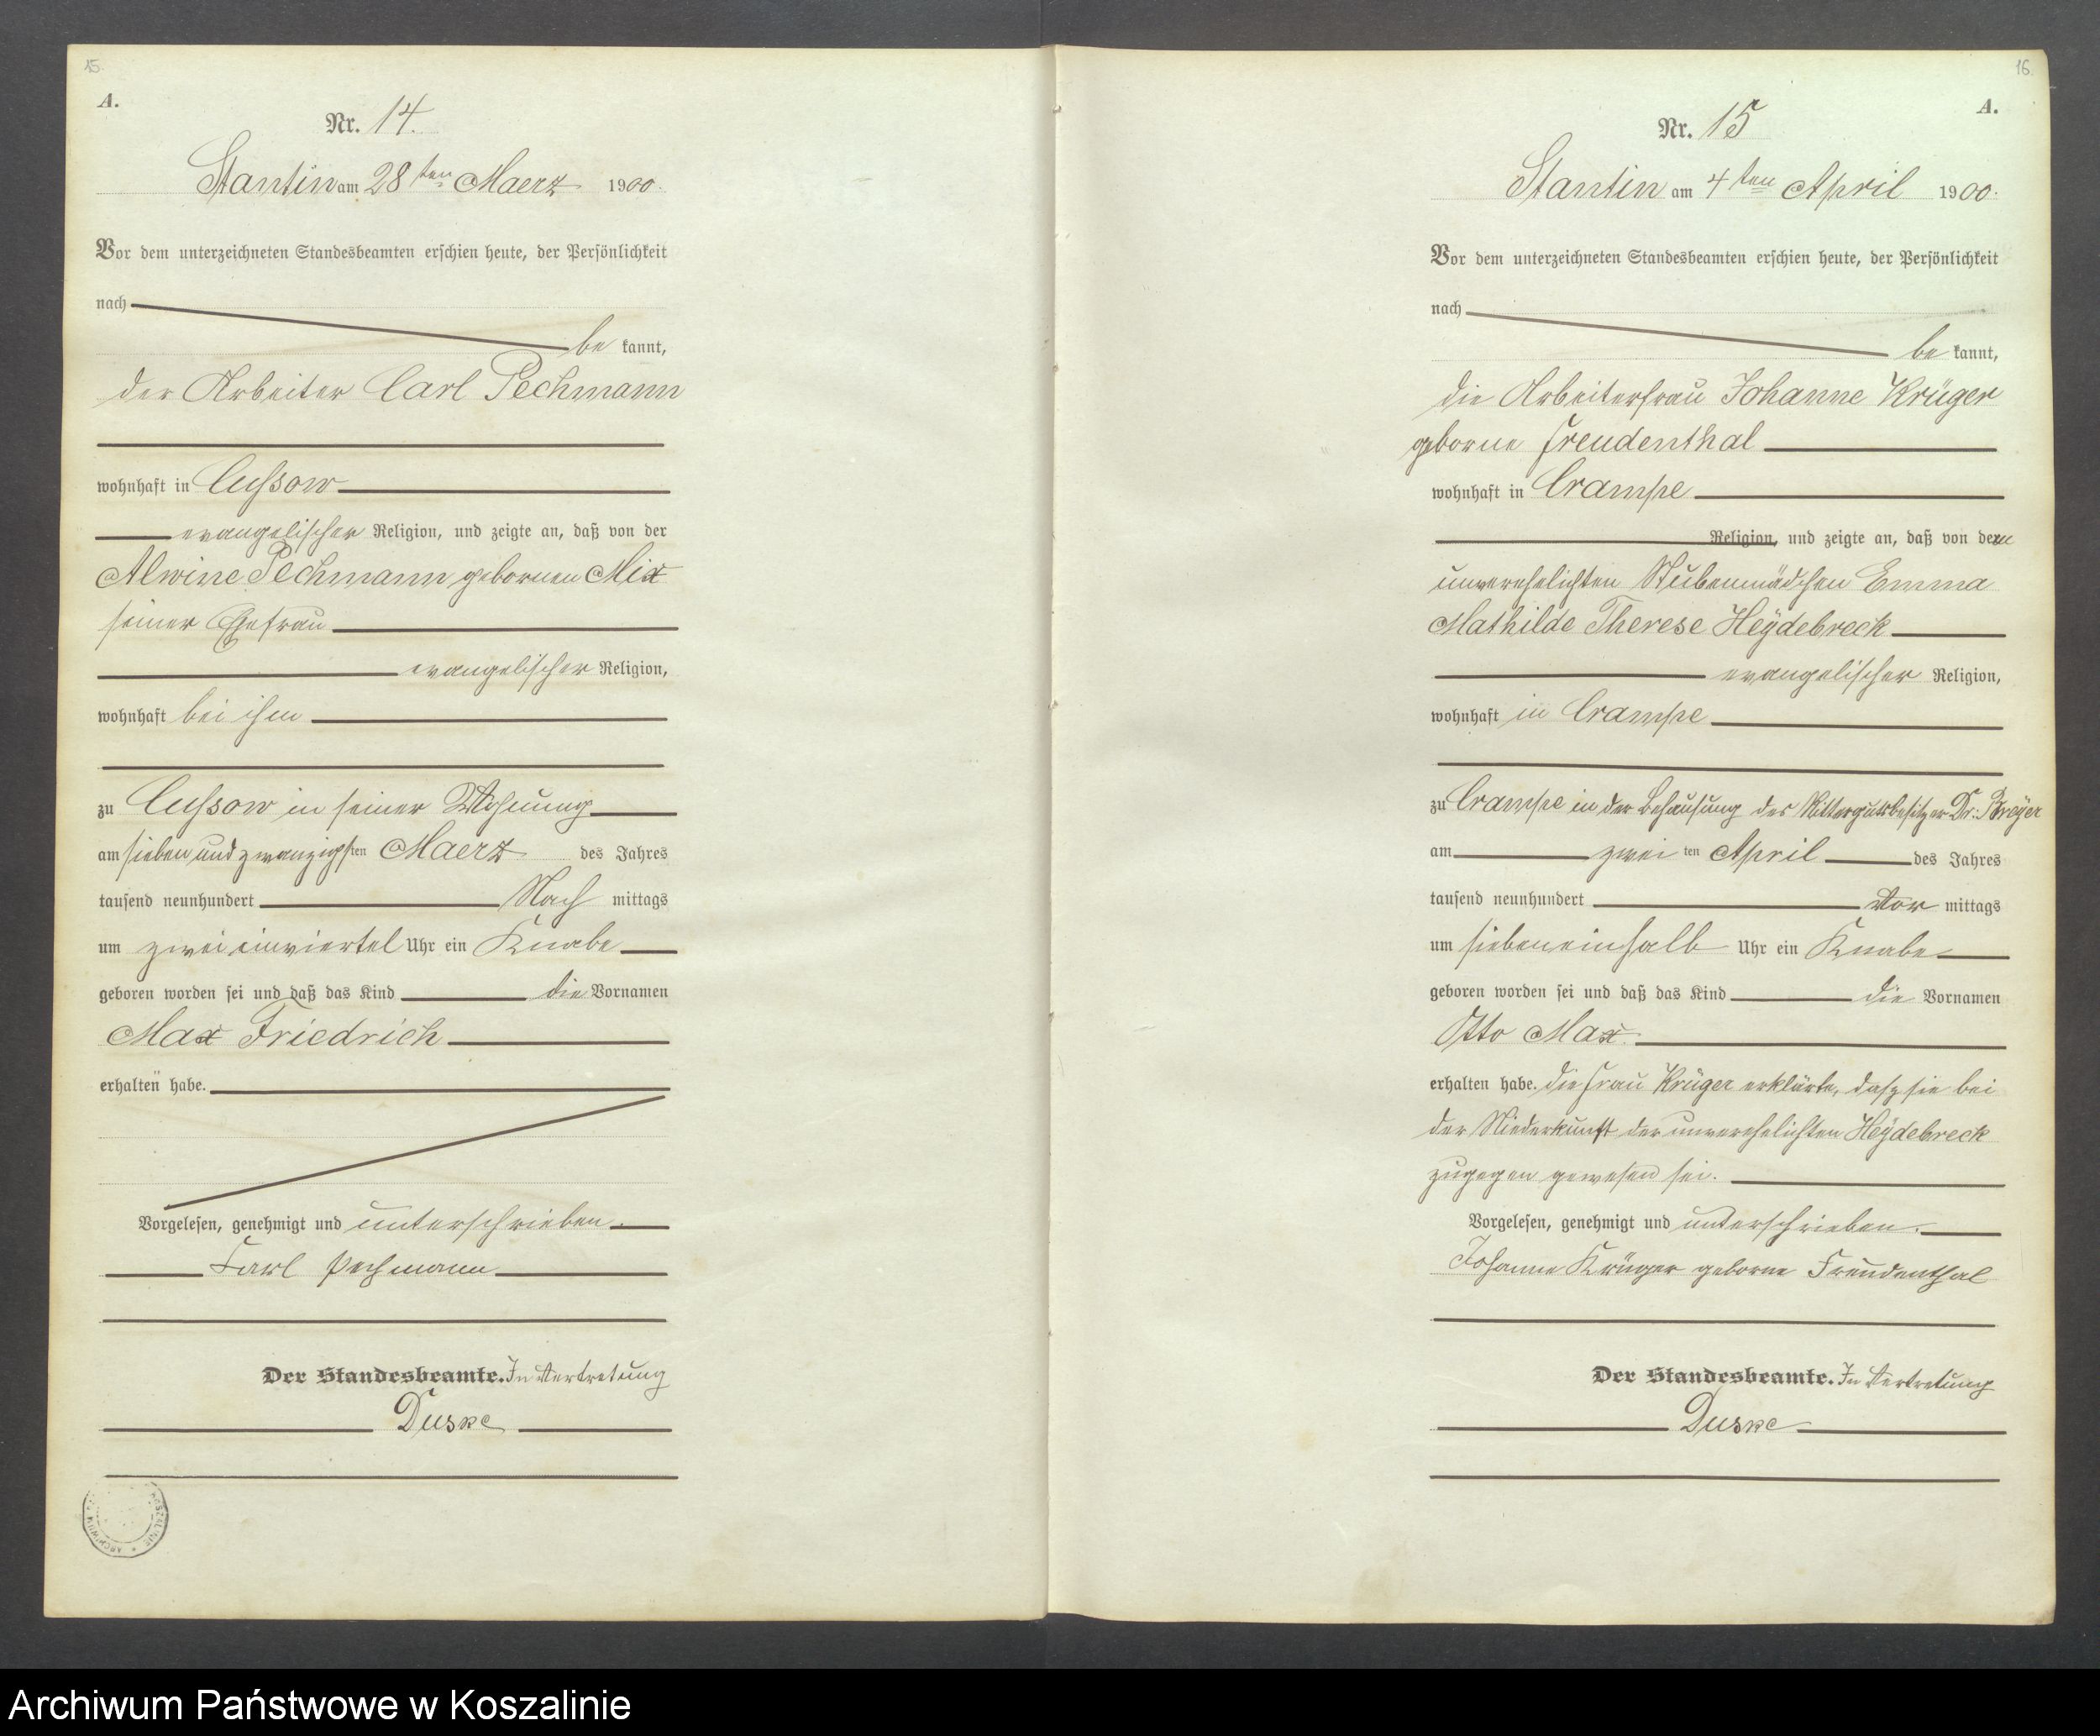 15.
A.
Nr. 14.
Stantin am 28ten Maerz 1900.
Vor dem unterzeichneten Standesbeamten erschien heute, der Persönlichkeit
nach
be kannt,
der Arbeiter Carl Pechmann
wohnhaft in Cussow
evangelischer Religion, und zeigte an, daß von der
Alwine Pechmann gebornen Mix
seiner Ehefrau
evangelischer Religion,
wohnhaft bei ihm
zu Cussow in seiner Wohnung
am sieben und zwanzigsten Maerz des Jahres
tausend neunhundert Nach mittags
um zwei einviertel Uhr ein Knabe
geboren worden sei und daß das Kind die Vornamen
Max Friedrich
erhalten habe.
Vorgelesen, genehmigt und unterschrieben.
Karl Pechmann
Der Standesbeamte. In Vertretung
Duske
16.
A.
Nr. 15
Stantin am 4ten April 1900.
Vor dem unterzeichneten Standesbeamten erschien heute, der Persönlichkeit
nach
be kannt,
die Arbeiterfrau Johanne Krüger
geborne Freudenthal
wohnhaft in Crampe
Religion, und zeigte an, daß von der
unverehelichten Stubenmädchen Emma
Mathilde Therese Heydebreck
evangelischer Religion,
wohnhaft in Crampe
zu Crampe in der Behausung des Rittergutsbesitzer Dr. Breyer
am zwei ten April des Jahres
tausend neunhundert Vor mittags
um sieben einhalb Uhr ein Knabe
geboren worden sei und daß das Kind die Vornamen
Otto Max.
erhalten habe. die Frau Krüger erklärte, dasz sie bei
der Niederkunft der unverehelichten Heydebreck
zugegen gewesen sei.
Vorgelesen, genehmigt und unterschrieben.
Johanne Krüger geborne Freudenthal
Der Standesbeamte. In Vertretung
Duske
Archiwum Państwowe w Koszalinie